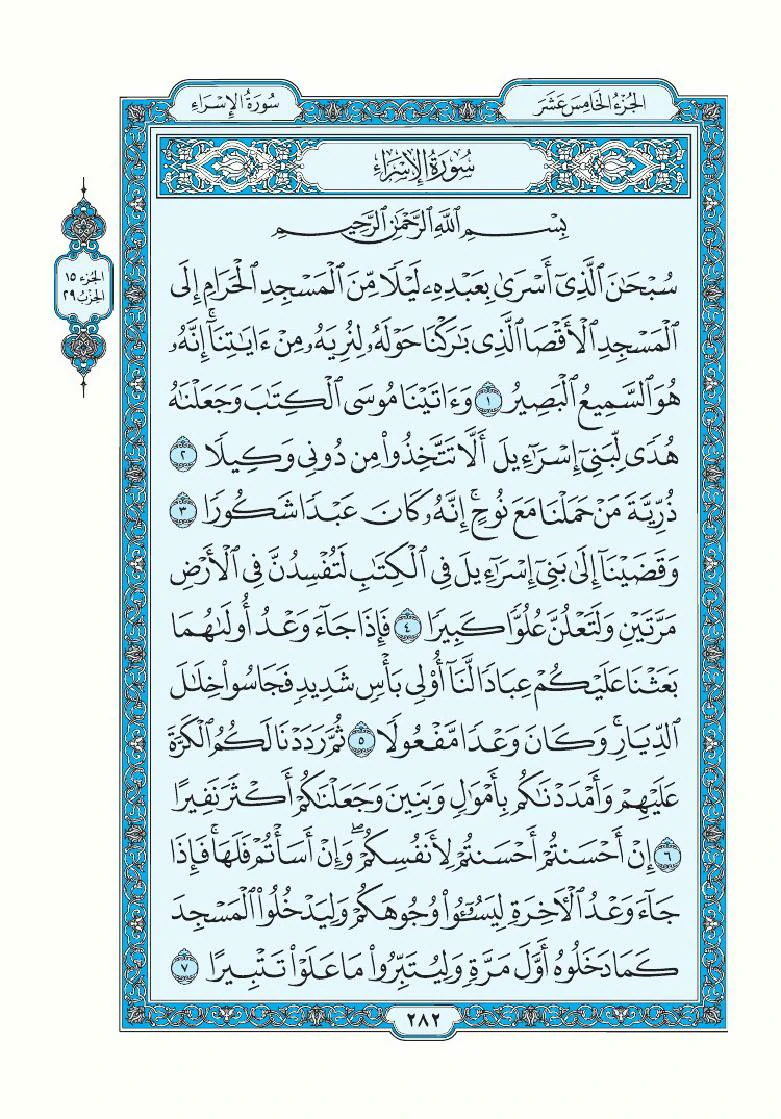 سُورَةُ الإِسْرَاءِ
الجُزْءُ الخَامِسَ عَشَرَ
سُورَةُ الإِسْرَاءِ
بِسْمِ ٱللَّهِ ٱلرَّحْمَٰنِ ٱلرَّحِيمِ
سُبْحَٰنَ ٱلَّذِيٓ أَسْرَىٰ بِعَبْدِهِۦ لَيْلًا مِّنَ ٱلْمَسْجِدِ ٱلْحَرَامِ إِلَى
ٱلْمَسْجِدِ ٱلْأَقْصَا ٱلَّذِي بَٰرَكْنَا حَوْلَهُۥ لِنُرِيَهُۥ مِنْ ءَايَٰتِنَآۚ إِنَّهُۥ
هُوَ ٱلسَّمِيعُ ٱلْبَصِيرُ ١ وَءَاتَيْنَا مُوسَى ٱلْكِتَٰبَ وَجَعَلْنَٰهُ
هُدًى لِّبَنِيٓ إِسْرَٰٓءِيلَ أَلَّا تَتَّخِذُوا۟ مِن دُونِي وَكِيلًا ٢
ذُرِّيَّةَ مَنْ حَمَلْنَا مَعَ نُوحٍۚ إِنَّهُۥ كَانَ عَبْدًا شَكُورًا ٣
وَقَضَيْنَآ إِلَىٰ بَنِيٓ إِسْرَٰٓءِيلَ فِي ٱلْكِتَٰبِ لَتُفْسِدُنَّ فِي ٱلْأَرْضِ
مَرَّتَيْنِ وَلَتَعْلُنَّ عُلُوًّا كَبِيرًا ٤ فَإِذَا جَآءَ وَعْدُ أُولَىٰهُمَا
بَعَثْنَا عَلَيْكُمْ عِبَادًا لَّنَآ أُو۟لِي بَأْسٍ شَدِيدٍ فَجَاسُوا۟ خِلَٰلَ
ٱلدِّيَارِۚ وَكَانَ وَعْدًا مَّفْعُولًا ٥ ثُمَّ رَدَدْنَا لَكُمُ ٱلْكَرَّةَ
عَلَيْهِمْ وَأَمْدَدْنَٰكُم بِأَمْوَٰلٍ وَبَنِينَ وَجَعَلْنَٰكُمْ أَكْثَرَ نَفِيرًا
٦ إِنْ أَحْسَنتُمْ أَحْسَنتُمْ لِأَنفُسِكُمْۖ وَإِنْ أَسَأْتُمْ فَلَهَاۚ فَإِذَا
جَآءَ وَعْدُ ٱلْأٓخِرَةِ لِيَسُـُٔوا۟ وُجُوهَكُمْ وَلِيَدْخُلُوا۟ ٱلْمَسْجِدَ
كَمَا دَخَلُوهُ أَوَّلَ مَرَّةٍ وَلِيُتَبِّرُوا۟ مَا عَلَوْا۟ تَتْبِيرًا ٧
الجُزء ١٥
الحِزْبُ ٢٩
٢٨٢